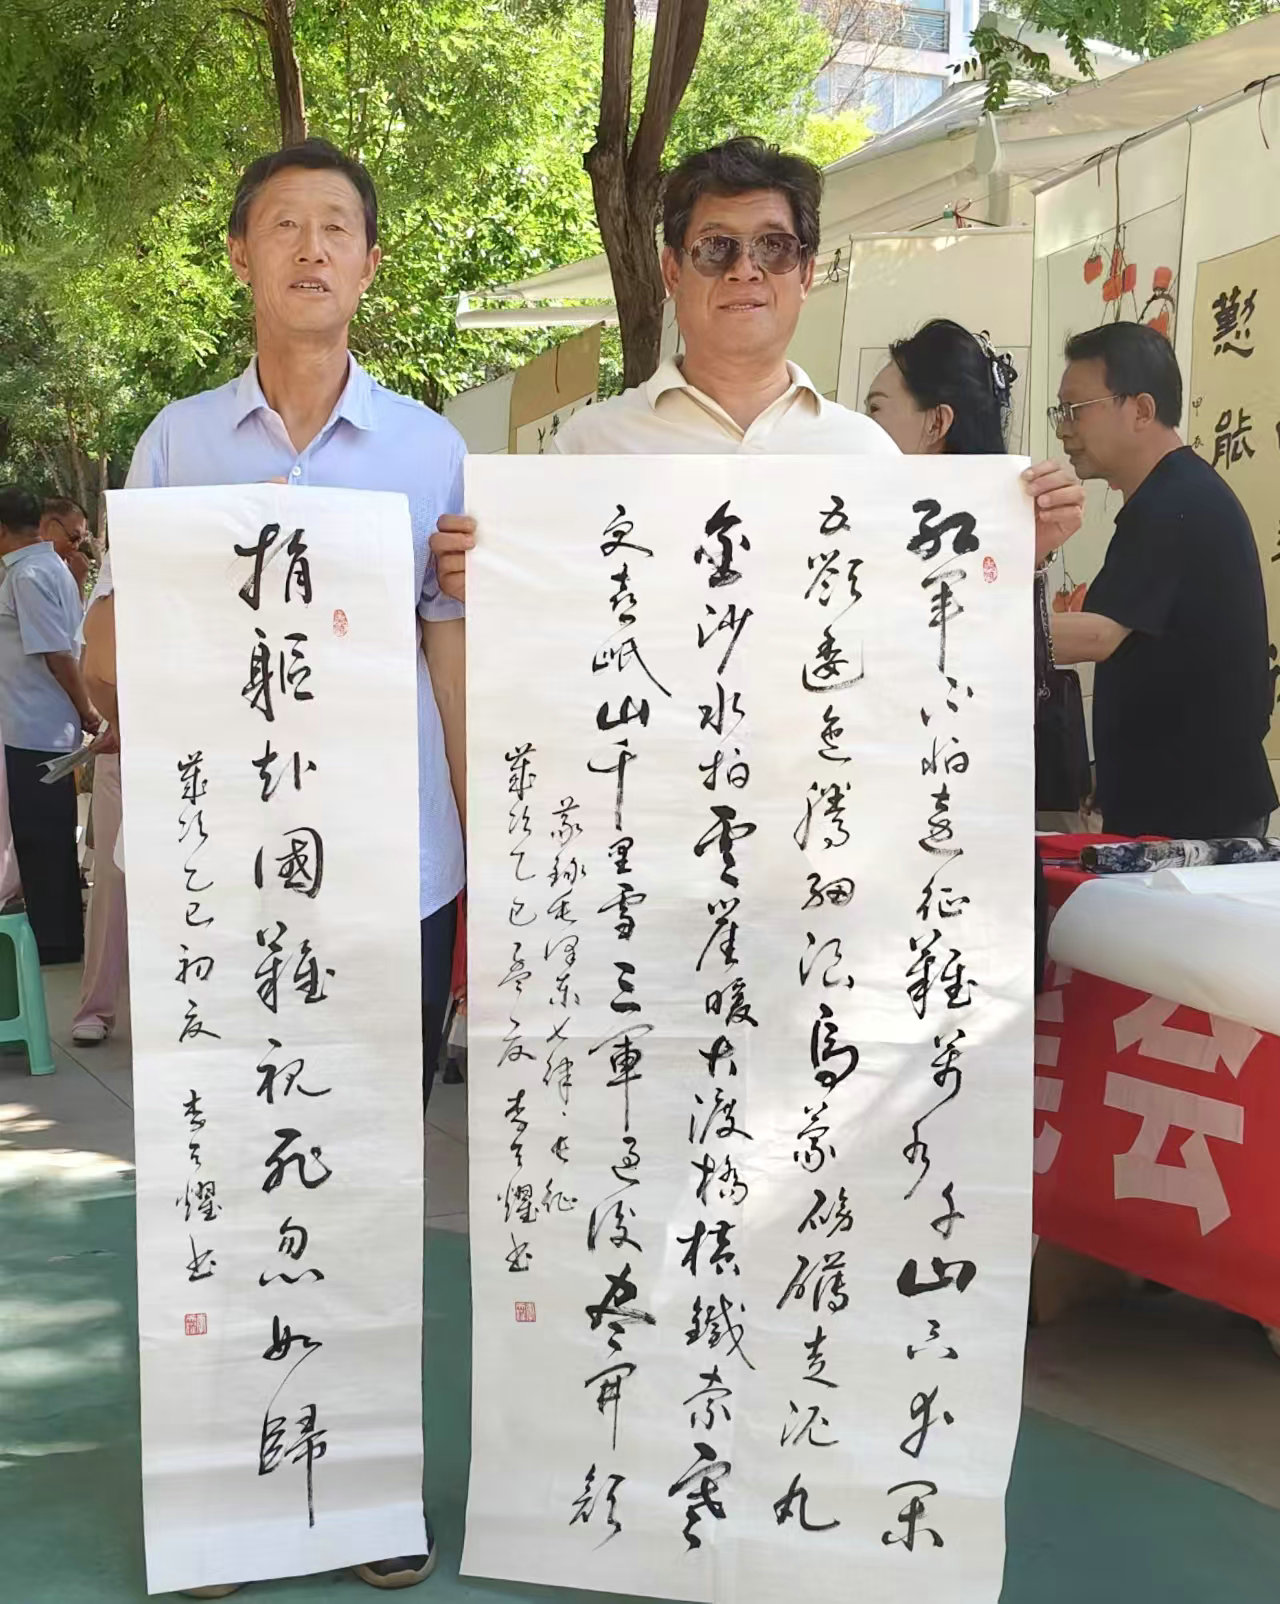 捐軀赴國難視死忽如歸
歲次乙巳初夏 李耀书
紅軍不怕遠征難萬水千山只等閑
五嶺逶迤騰細浪烏蒙磅礴走泥丸
金沙水拍雲崖暖大渡橋橫鐵索寒
更喜岷山千里雪三軍過後盡開顏
敬錄毛澤東七律·長征
歲次乙巳孟夏 李耀书
懃能
甲辰
会